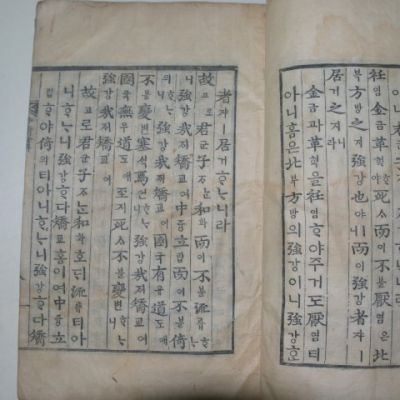 衽염金금革혁死ᄉᆞ而이不블厭염은北
북方방之지強강也야ㅣ니而이強강者쟈ㅣ
居거之지니라
金금과革혁을衽염ᄒᆞ야주거도厭염티
아니홈은北북方방의強강이니強강ᄒᆞᆫ
者쟈ㅣ居거ᄒᆞᄂᆞ니라
故고로君군子ᄌᆞᄂᆞᆫ和화而이不블流류ᄒᆞᄂᆞ
니強강哉ᄌᆡ矯교여中듕立립而이不블倚
의ᄒᆞᄂᆞ니強강哉ᄌᆡ矯교여國국有유道도애
不블變변塞ᄉᆡᆨ焉언ᄒᆞᄂᆞ니強강哉ᄌᆡ矯교여
國국無무道도애至지死ᄉᆞ不블變변ᄒᆞᄂᆞ니
強강哉ᄌᆡ矯교여
故고로君군子ᄌᆞᄂᆞᆫ和화호ᄃᆡ流류티아
니ᄒᆞᄂᆞ니強강ᄒᆞ다矯교홈이여中듕立
립ᄒᆞ야倚의티아니ᄒᆞᄂᆞ니強강ᄒᆞ다矯